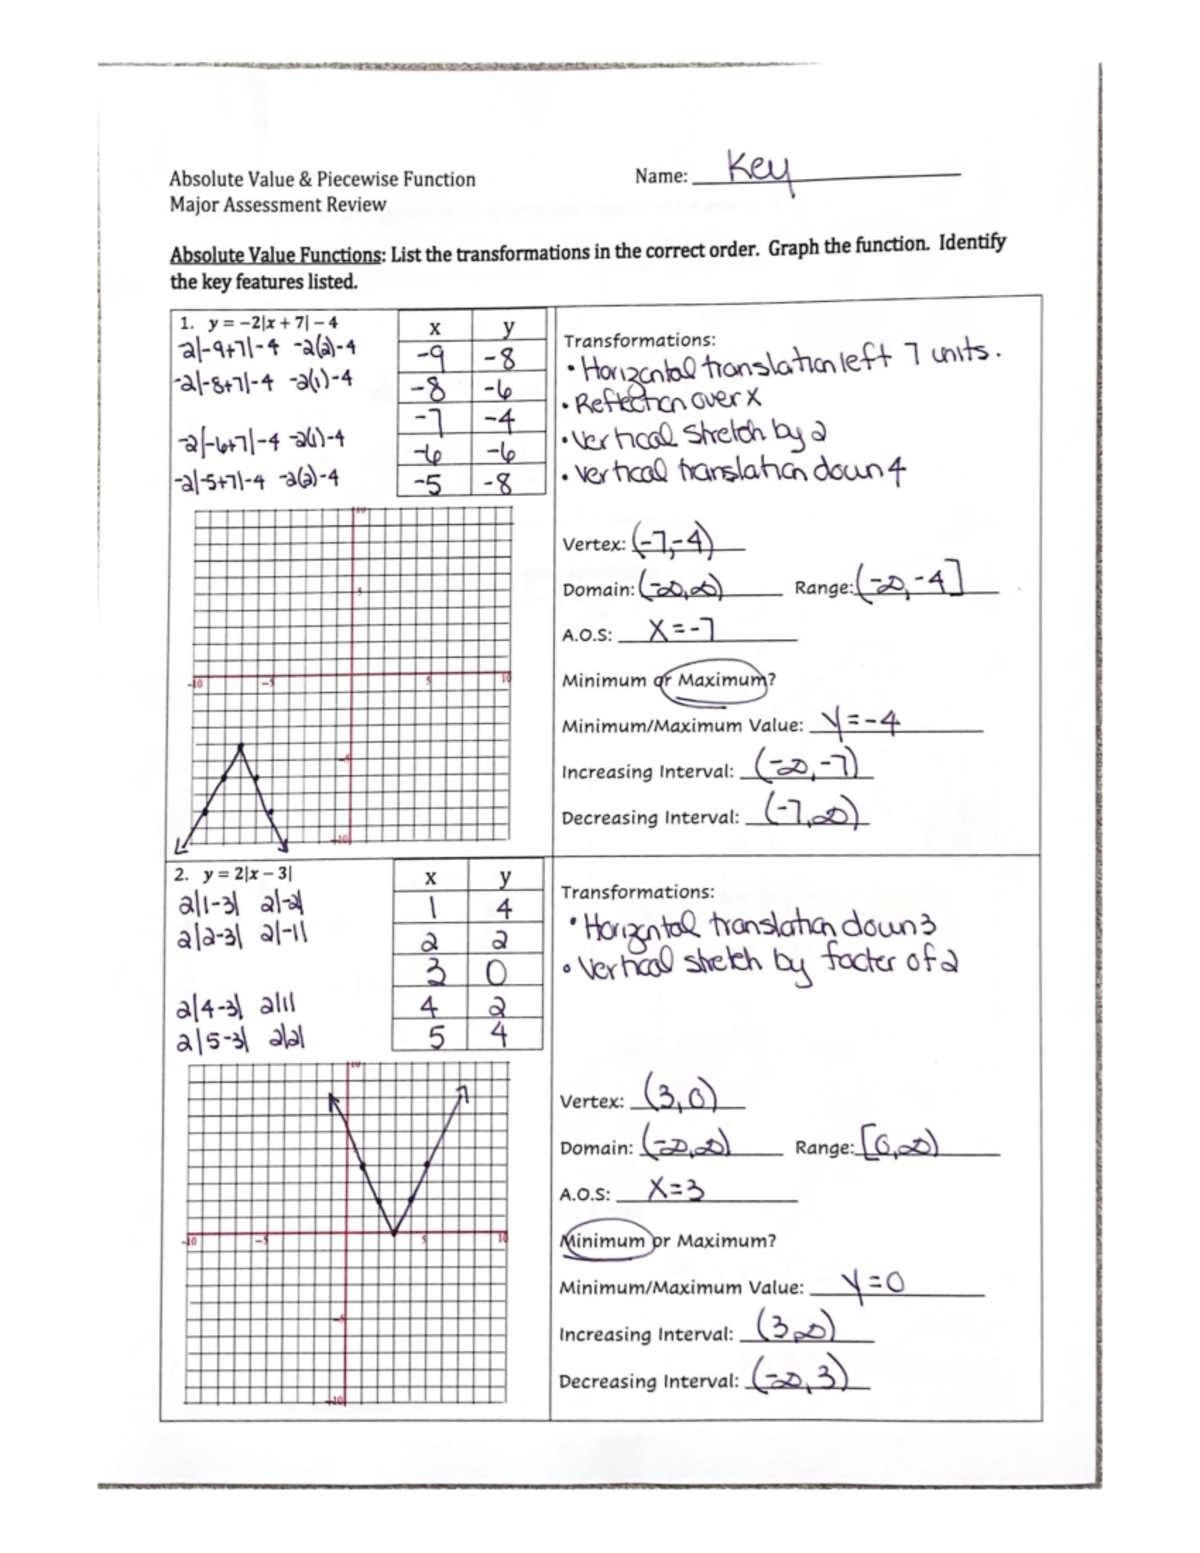 Absolute Value & Piecewise Function
Name: Key
Major Assessment Review
Absolute Value Functions: List the transformations in the correct order. Graph the function. Identify
the key features listed.
1. y = −2|x + 7| − 4
-2|-9+7|-4 -2(2)-4
-2|-8+7|-4 -2(1)-4
-2|-6+7|-4 -2(1)-4
-2|-5+7|-4 -2(2)-4
x y
-9 -8
-8 -6
-7 -4
-6 -6
-5 -8
Transformations:
• Horizontal translation left 7 units.
• Reflection over x
• Vertical stretch by 2
• vertical translation down 4
10
5
-10 -5 5 10
-5
-10
Vertex: (-7,-4)
Domain: (-∞,∞) Range: (-∞,-4]
A.O.S: X=-7
Minimum or Maximum?
Minimum/Maximum Value: y=-4
Increasing Interval: (-∞,-7)
Decreasing Interval: (-7,∞)
2. y = 2|x − 3|
2|1-3| 2|-2|
2|2-3| 2|-1|
2|4-3| 2|1|
2|5-3| 2|2|
x y
1 4
2 2
3 0
4 2
5 4
Transformations:
• Horizontal translation down 3
• Vertical stretch by facter of 2
10
-10 -5 5 10
-5
-10
Vertex: (3,0)
Domain: (-∞,∞) Range: [0,∞)
A.O.S: X=3
Minimum or Maximum?
Minimum/Maximum Value: y=0
Increasing Interval: (3,∞)
Decreasing Interval: (-∞,3)